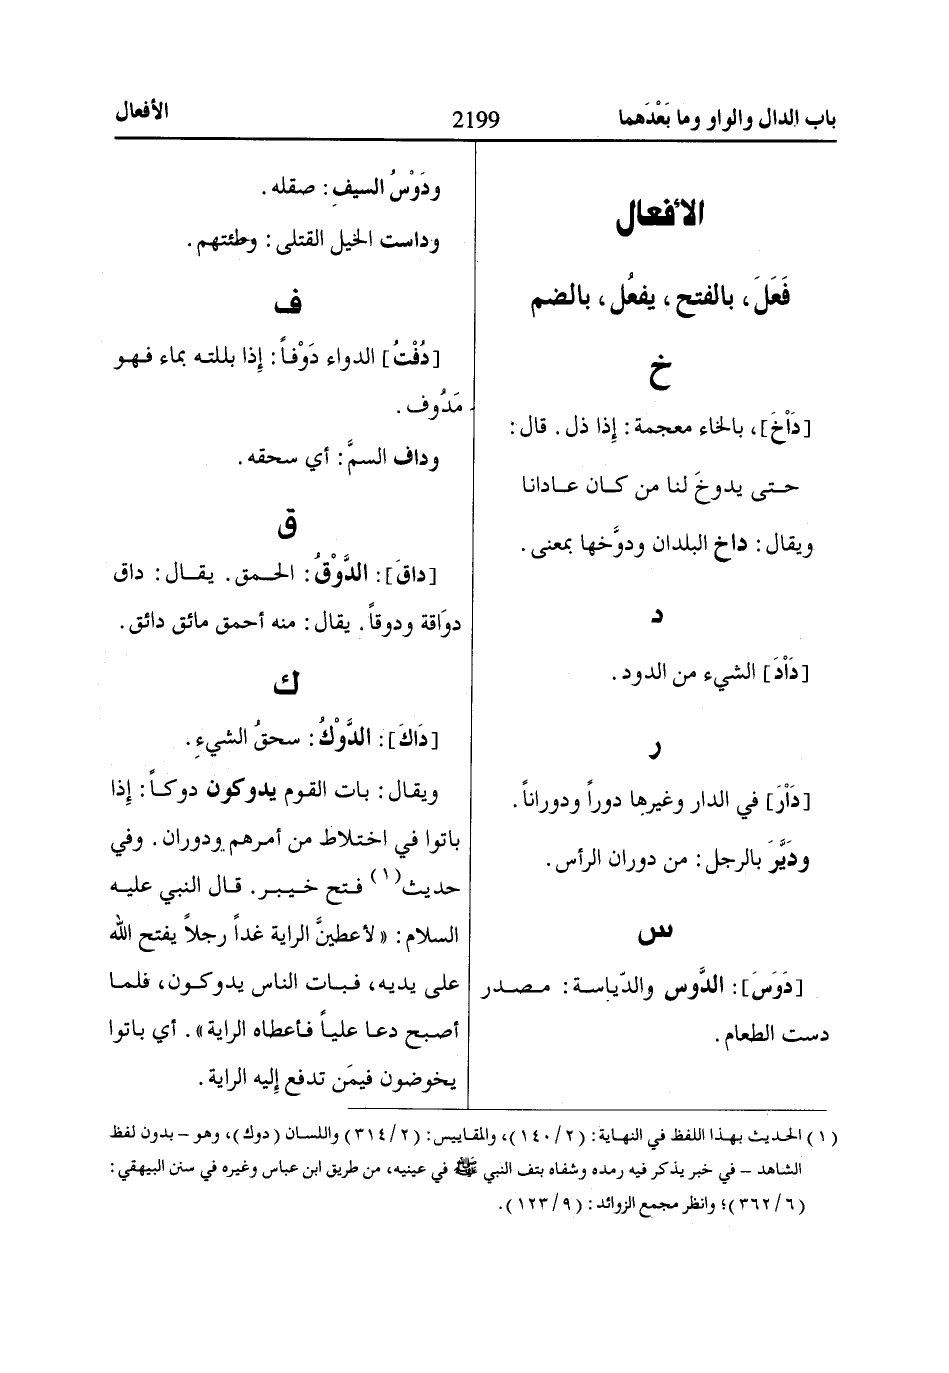 باب الدال والواو وما بَعْدَهما
2199
الأفعال
الأفعال
فَعَلَ، بالفتح، يفعُل، بالضم
خ
[دَاْخَ]، بالخاء معجمة: إذا ذل. قال:
حتى يدوخَ لنا من كان عادانا
ويقال: داخ البلدان ودوَّخها بمعنى.
د
[دَاْدَ] الشيء من الدود.
ر
[دَاْرَ] في الدار وغيرها دوراً ودوراناً.
ودَيَّرَ بالرجل: من دوران الرأس.
س
[دَوَسَ]: الدَّوس والدّياسة: مصدر
دست الطعام.
ودَوْسُ السيفِ: صقله.
وداست الخيل القتلى: وطئتهم.
ف
[دُفْتُ] الدواء دَوْفاً: إذا بللته بماء فهو
مَدُوف.
وداف السمَّ: أي سحقه.
ق
[داقَ]: الدَّوْقُ: الحمق. يقال: داق
دوَاقة ودوقاً. يقال: منه أحمق مائق دائق.
ك
[دَاكَ]: الدَّوْكُ: سحقُ الشيءِ.
ويقال: بات القوم يدوكون دوكاً: إذا
باتوا في اختلاط من أمرهم ودوران. وفي
حديث(١) فتح خيبر. قال النبي عليه
السلام: «لأعطينَّ الراية غداً رجلاً يفتح الله
على يديه، فبات الناس يدوكون، فلما
أصبح دعا علياً فأعطاه الراية». أي باتوا
يخوضون فيمَن تدفع إليه الراية.
(١) الحديث بهذا اللفظ في النهاية: (٢/ ١٤٠)، والمقاييس: (٢/ ٣١٤) واللسان (دوك)، وهو – بدون لفظ
الشاهد – في خبر يذكر فيه رمده وشفاه بتف النبي ﷺ في عينيه، من طريق ابن عباس وغيره في سنن البيهقي:
(٦/ ٣٦٢)؛ وانظر مجمع الزوائد: (٩/ ١٢٣).